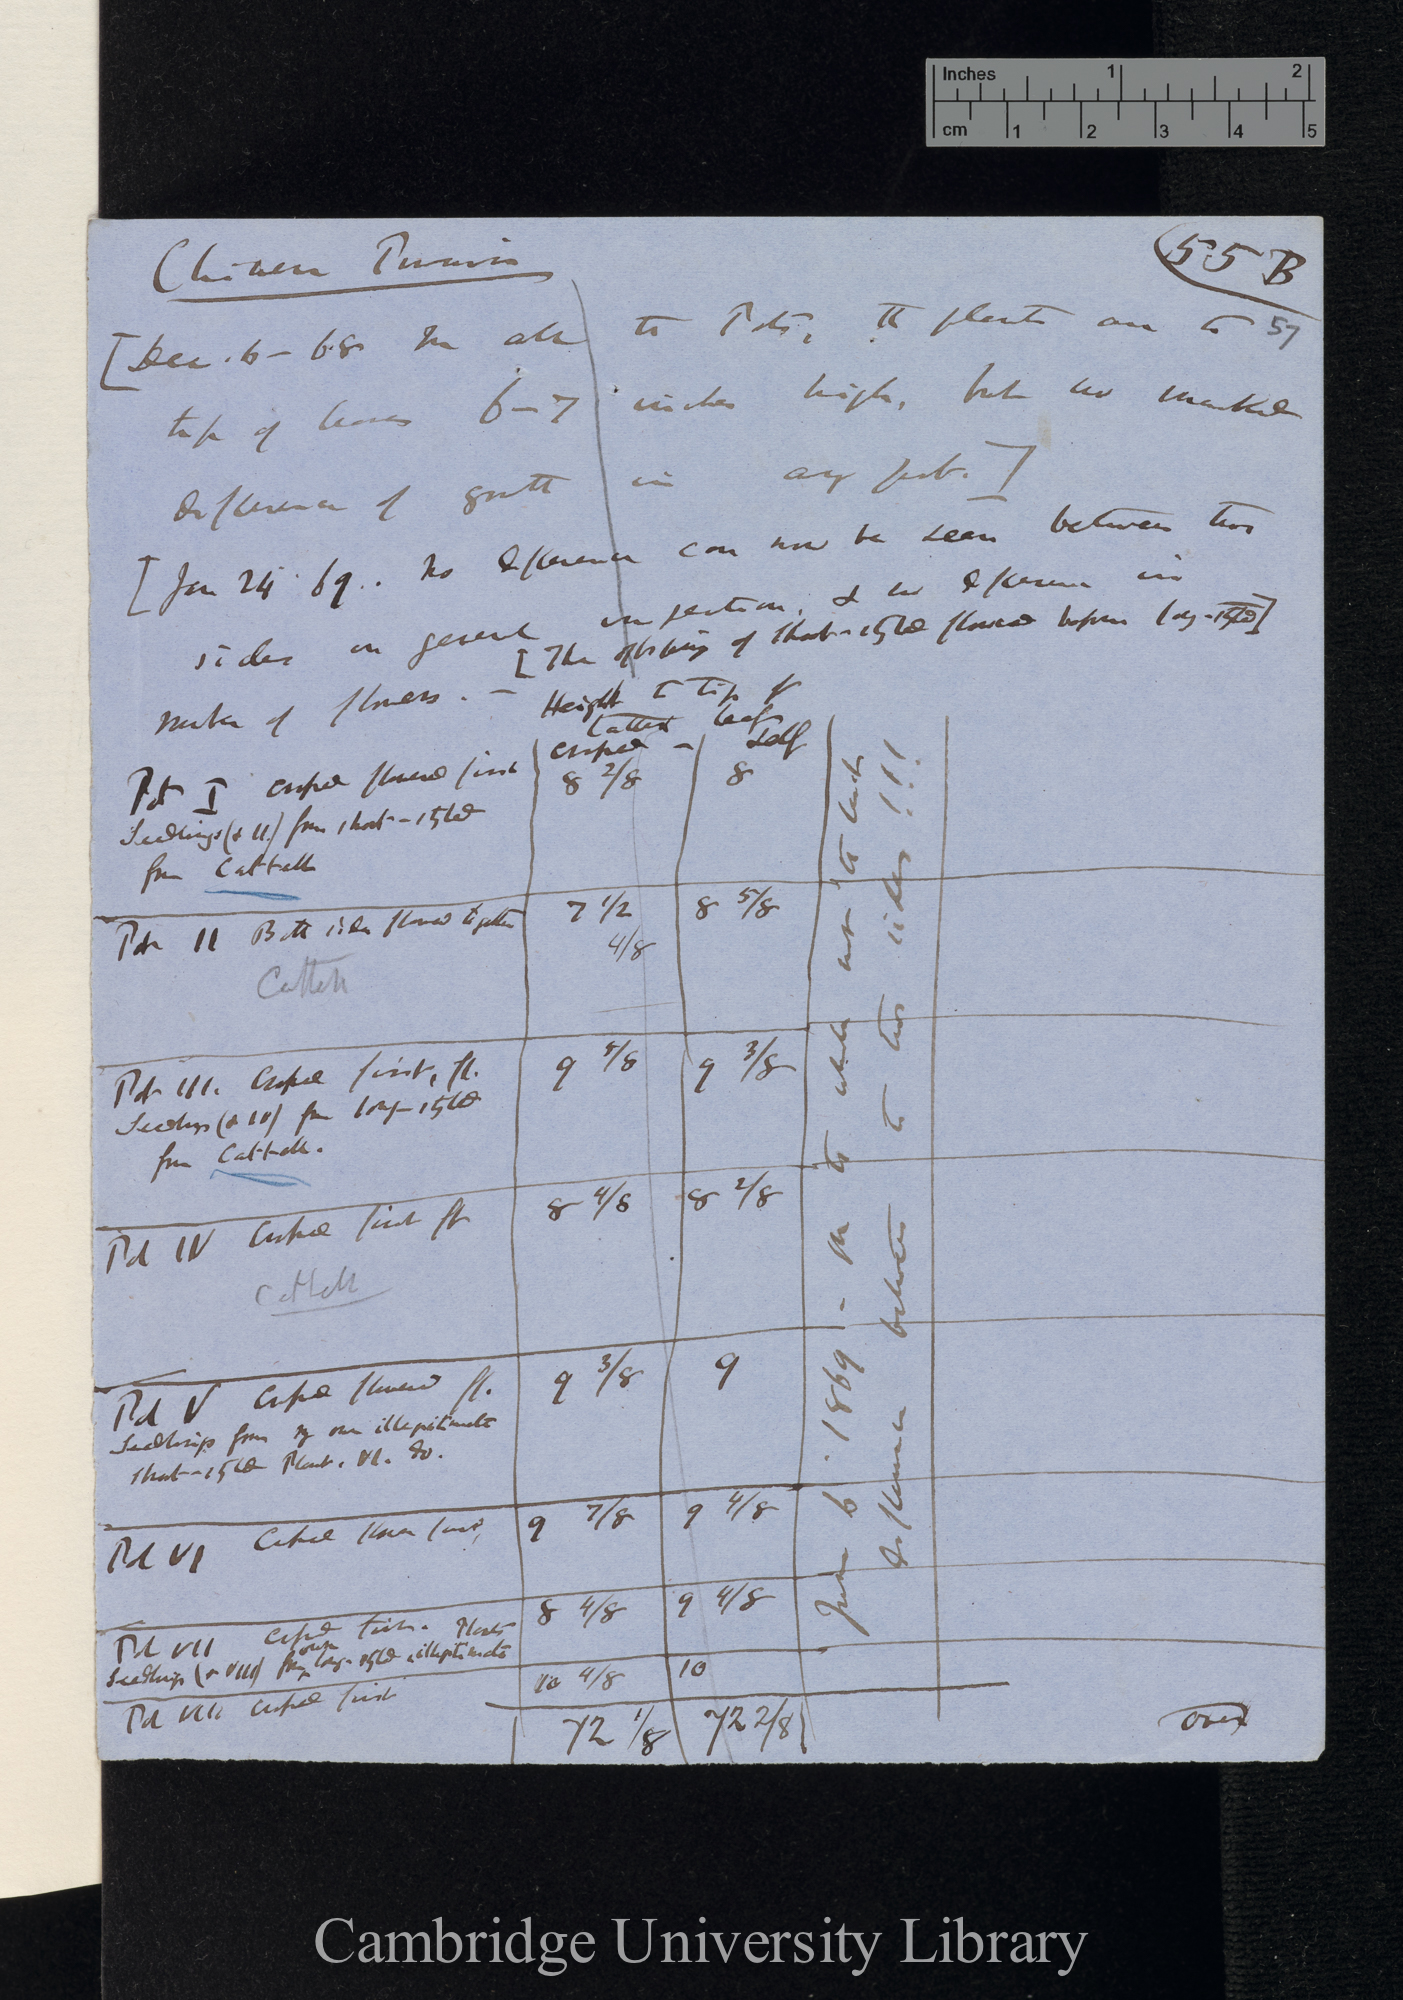 Inches 1 2
cm 1 2 3 4 5
Chinese Primrose
55 B
57
[Dec. 6 - 68 In all the Pots, the plants are to
tip of leaves 6-7 inches high, but no marked
difference of growth in any pot.]
[Jan 24 69. No difference can now be seen between two
sides in general inspection, & no difference in
number of flowers. —
[The offspring of short-styled flowered before long-styled]
Height to tip of
leaf
crossed — self
Pot I crossed flowered first 8 2/8 8
Seedlings (& II.) from short-styled
from Cattell
Pot II Both sides flowered together 7 1/2 8 5/8
4/8
Cattell
Pot III. Crossed first, fl. 9 5/8 9 3/8
Seedlings (& IV) from long-styled
from Cattell.
Pot IV Crossed first fl 8 4/8 8 2/8
Cattell
Pot V Crossed flowered fl. 9 3/8 9
Seedlings from my own illegitimate
short-styled Plant. VI. do.
Pot VI Crossed flower first, 9 7/8 9 4/8
Pot VII crossed first. Plants 8 4/8 9 4/8
Seedlings (& VIII) from own long-styled illegitimate
Pot VIII crossed first 10 4/8 10
72 1/8 72 2/8
June 6 1869 — the whole not the least
difference between the two sides!!!
Over
Cambridge University Library